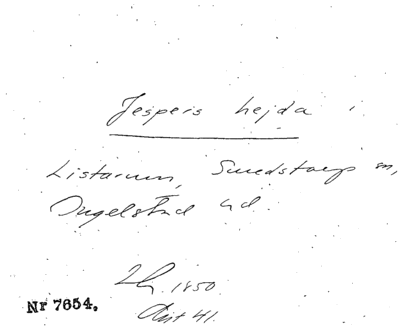 Jespers hejda i
Listarum, Smedstorp sn,
Ingelstad hd.
1850.
Nr 7654.